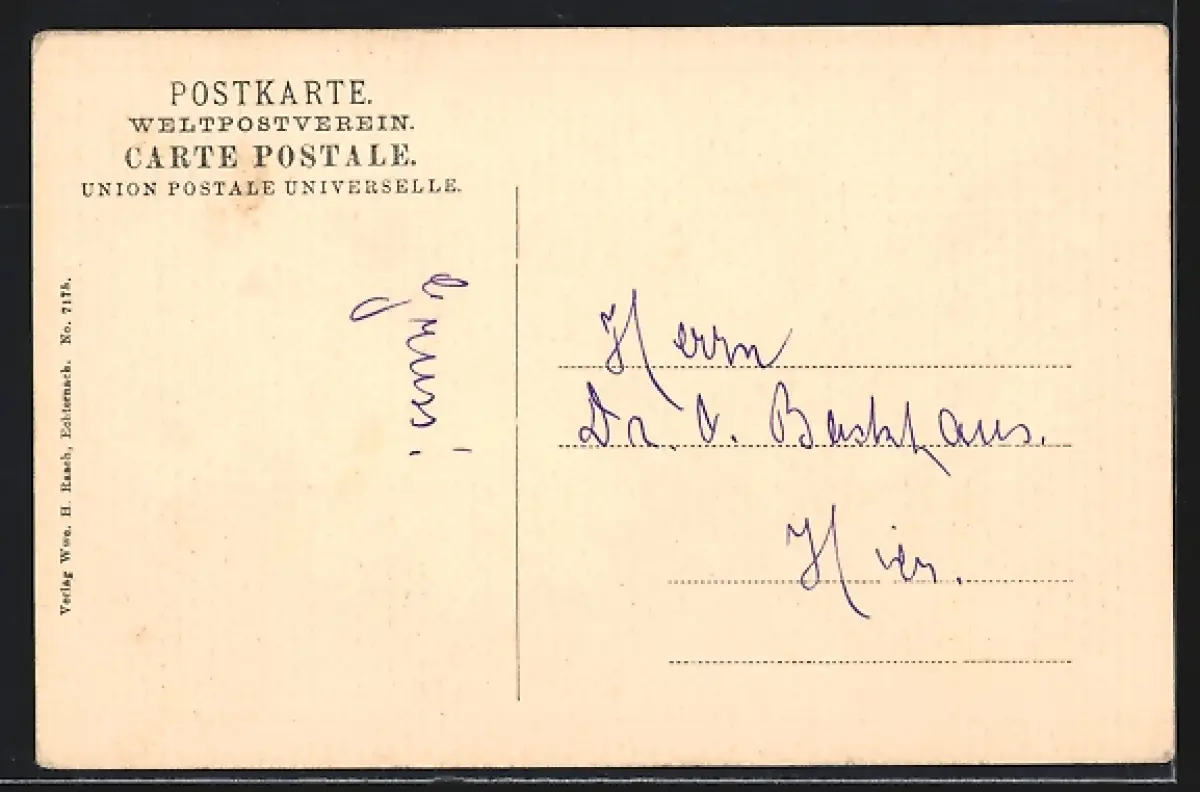 POSTKARTE.
WELTPOSTVEREIN.
CARTE POSTALE.
UNION POSTALE UNIVERSELLE.
Verlag Wwe. H. Raach, Echternach. No. 7178.
Gruss!
Herrn
Dr. v. Bastkaus.
Hier.